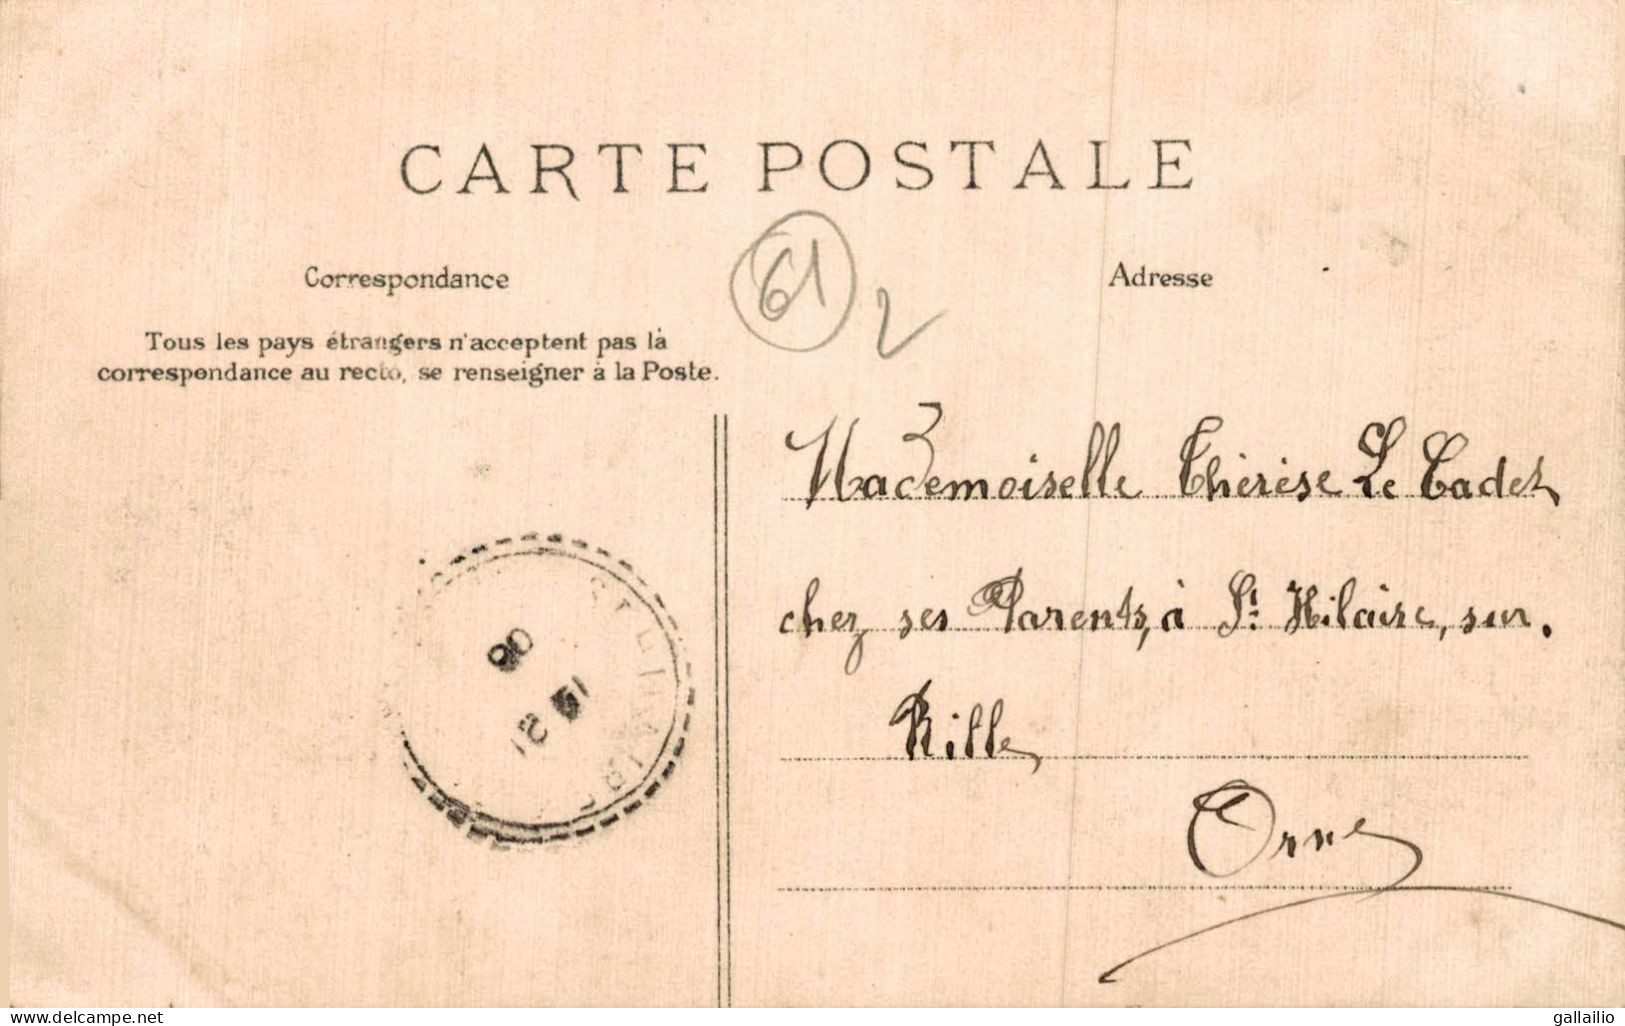 CARTE POSTALE
61
2
Correspondance
Adresse
Tous les pays étrangers n'acceptent pas la
correspondance au recto, se renseigner à la Poste.
Mademoiselle Thérèse Le Cadet
chez ses Parents, à St Hilaire, sur.
Rille
Orne
08
www.delcampe.net
gallailio